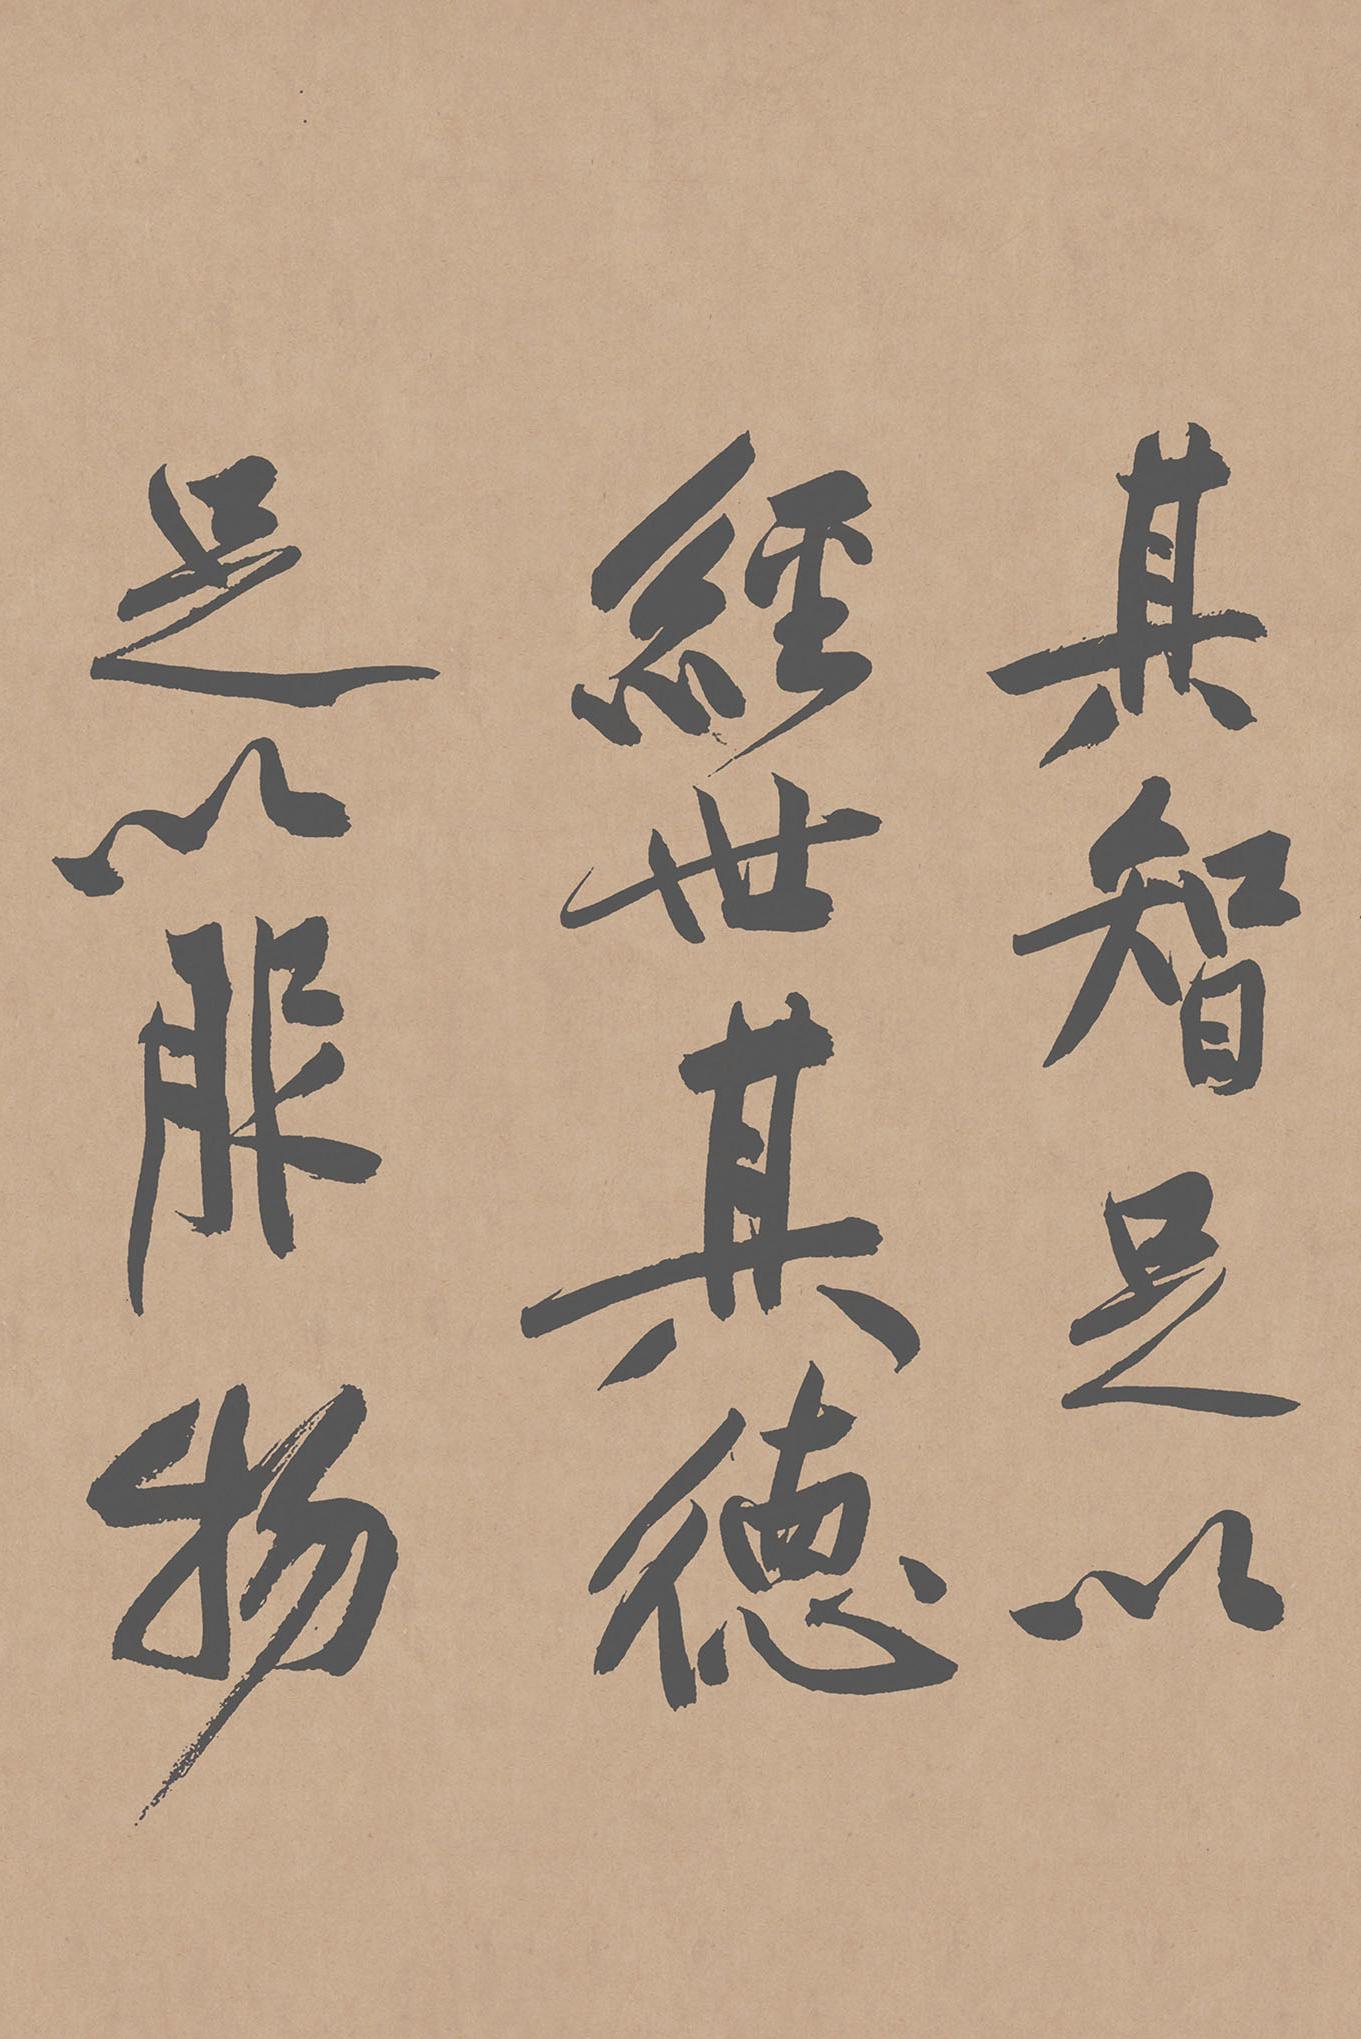 其智足以
經世其德
足以服物